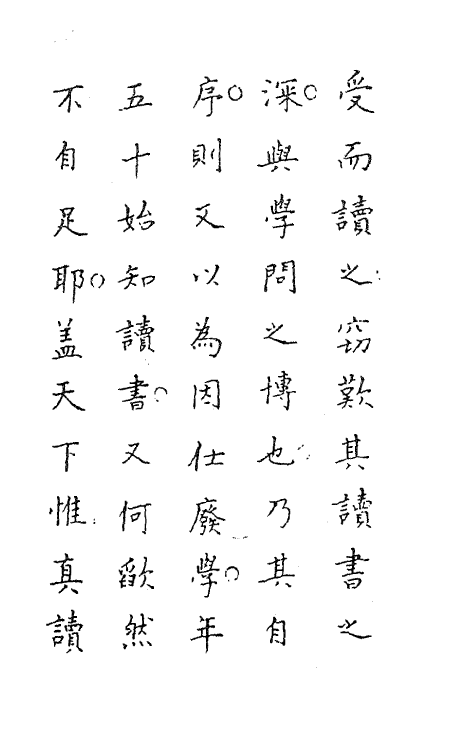 受而讀之窃歎其讀書之
深○與學問之博也乃其自
序○則又以為因仕廢學○年
五十始知讀書○又何歉然
不自足耶○盖天下惟真讀